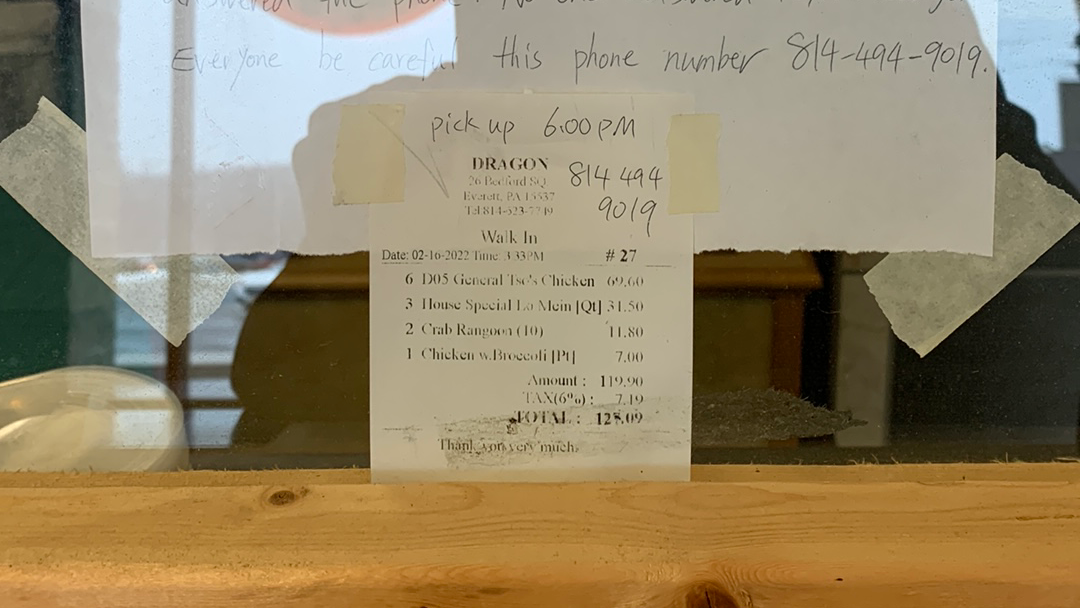 answered the phone. No one answered
Everyone be careful this phone number 814-494-9019.
pick up 6:00 PM
DRAGON
814 494
9019
26 Bedford SQ
Everett, PA 15537
Tel:814-623-7749
Walk In
Date: 02-16-2022 Time: 3:33PM # 27
6 D05 General Tso's Chicken 69.60
3 House Special Lo Mein [Qt] 31.50
2 Crab Rangoon (10) 11.80
1 Chicken w.Broccoli [Pt] 7.00
Amount : 119.90
TAX(6%) : 7.19
TOTAL : 127.09
Thank you very much.